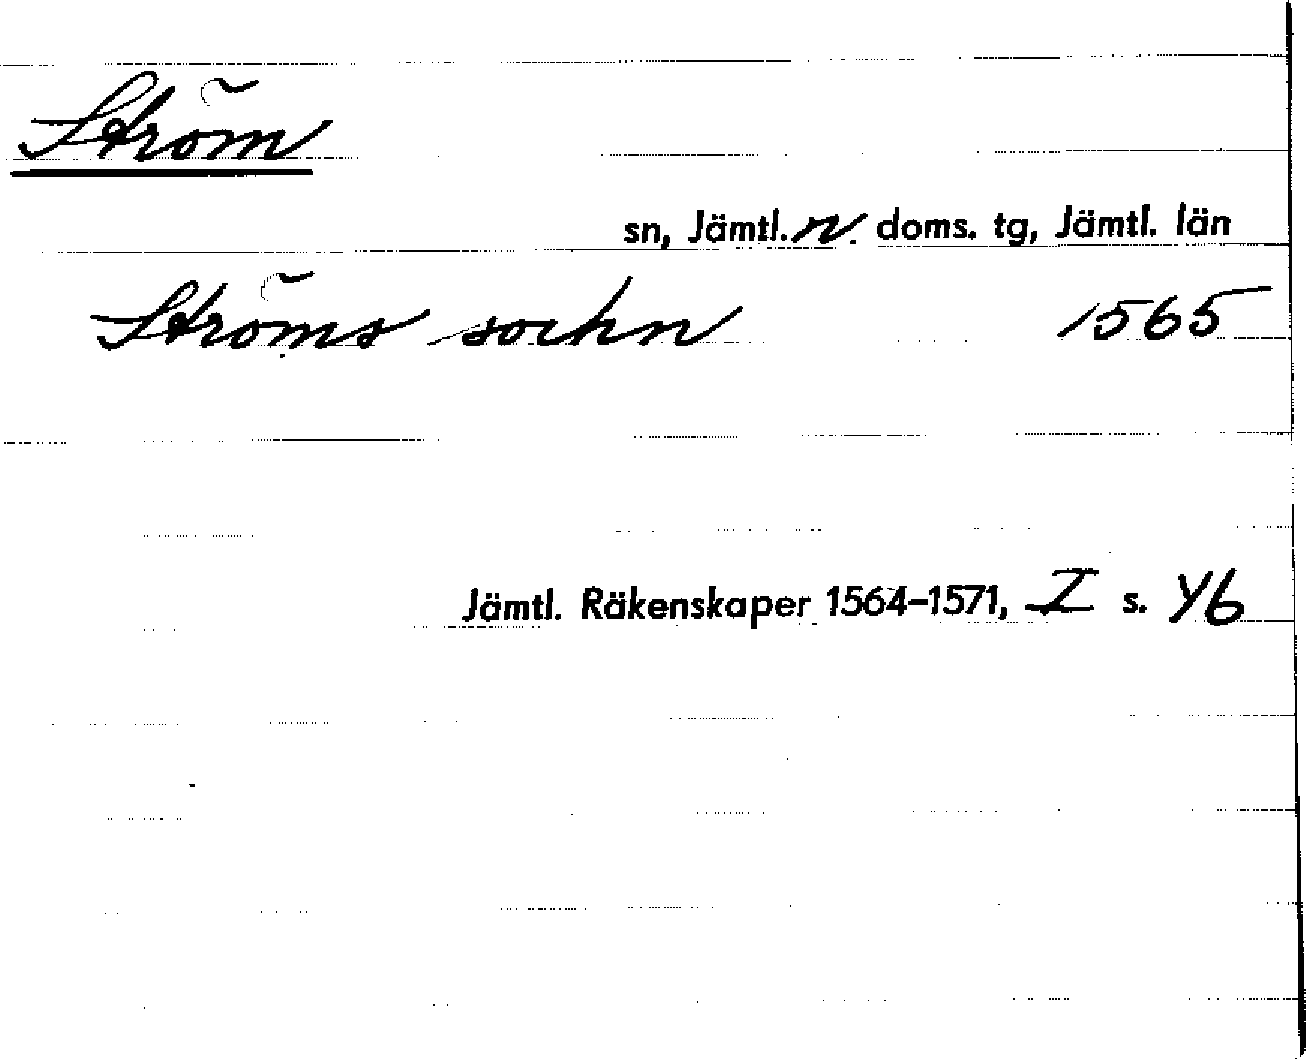 Ström
sn, Jämtl. n. doms. tg, Jämtl. län
Ströms sochn 1565
Jämtl. Räkenskaper 1564-1571, I s. 46